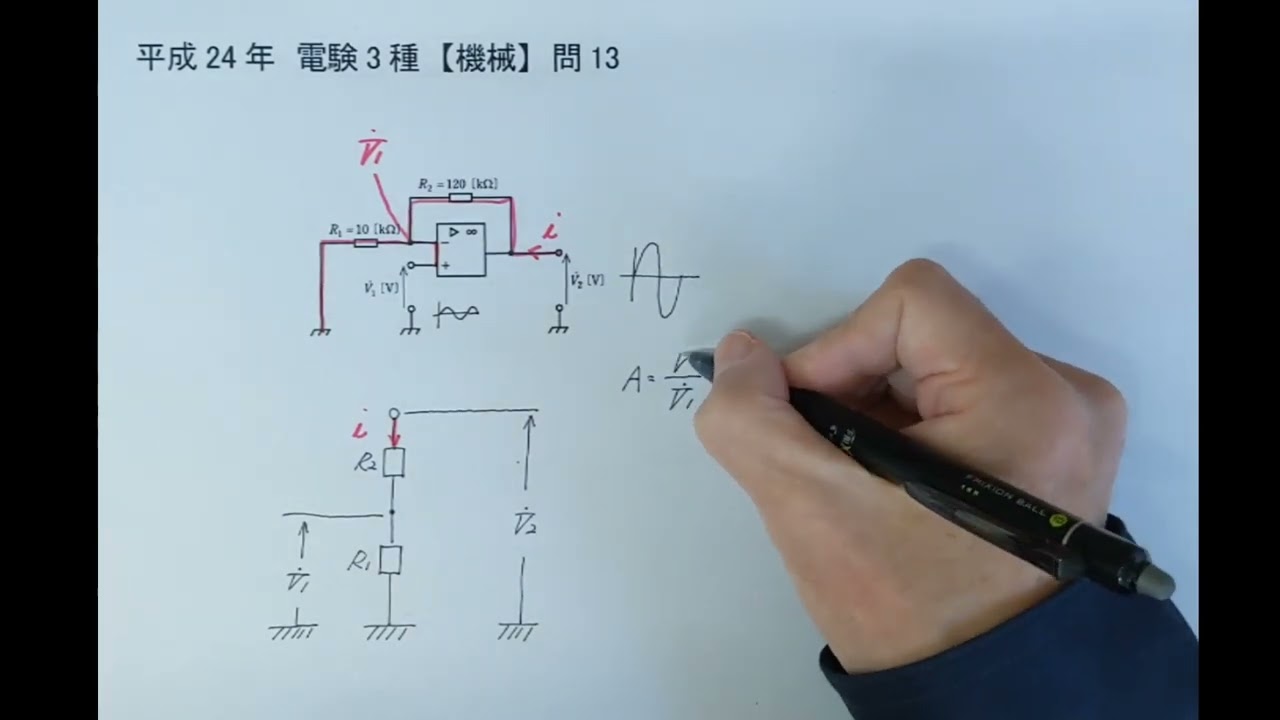 平成24年 電験3種【機械】 問13
V̇₁
R₂=120 [kΩ]
R₁=10 [kΩ]
▷ ∞
−
+
i
V̇₁ [V]
V̇₂ [V]
A= V/V̇₁
i
R₂
V̇₂
R₁
V̇₁
FRIXION BALL